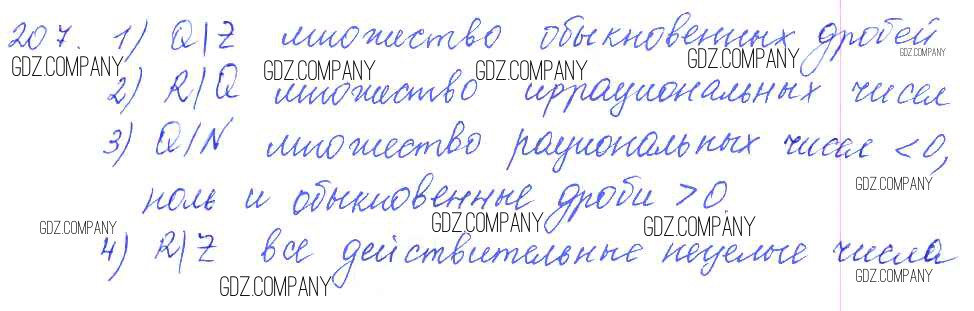 207. 1) Q|Z множество обыкновенных дробей
GDZ.COMPANY GDZ.COMPANY GDZ.COMPANY GDZ.COMPANY
2) R|Q множество иррациональных чисел
3) Q|N множество рациональных чисел <0,
GDZ.COMPANY
ноль и обыкновенные дроби >0
GDZ.COMPANY GDZ.COMPANY GDZ.COMPANY
4) R|Z все действительные нецелые числа
GDZ.COMPANY GDZ.COMPANY